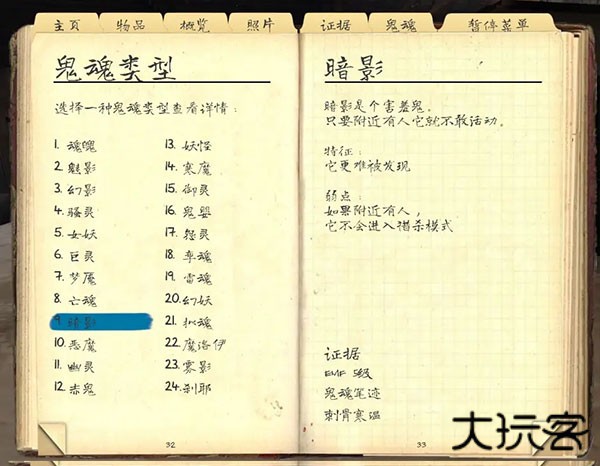 主页 物品 概览 照片 证据 鬼魂 暂停菜单
鬼魂类型
选择一种鬼魂类型查看详情:
1. 魂魄
2. 魅影
3. 幻影
4. 骚灵
5. 女妖
6. 巨灵
7. 梦魇
8. 亡魂
9. 暗影
10. 恶魔
11. 幽灵
12. 赤鬼
13. 妖怪
14. 寒魔
15. 御灵
16. 鬼婴
17. 怨灵
18. 孪魂
19. 雷魂
20. 幻妖
21. 拟魂
22. 魔洛伊
23. 雾影
24. 刹耶
32
暗影
暗影是个害羞鬼。
只要附近有人它就不敢活动。
特征:
它更难被发现
弱点:
如果附近有人,
它不会进入猎杀模式
证据
EMF 5级
鬼魂笔迹
刺骨寒温
33
大玩客